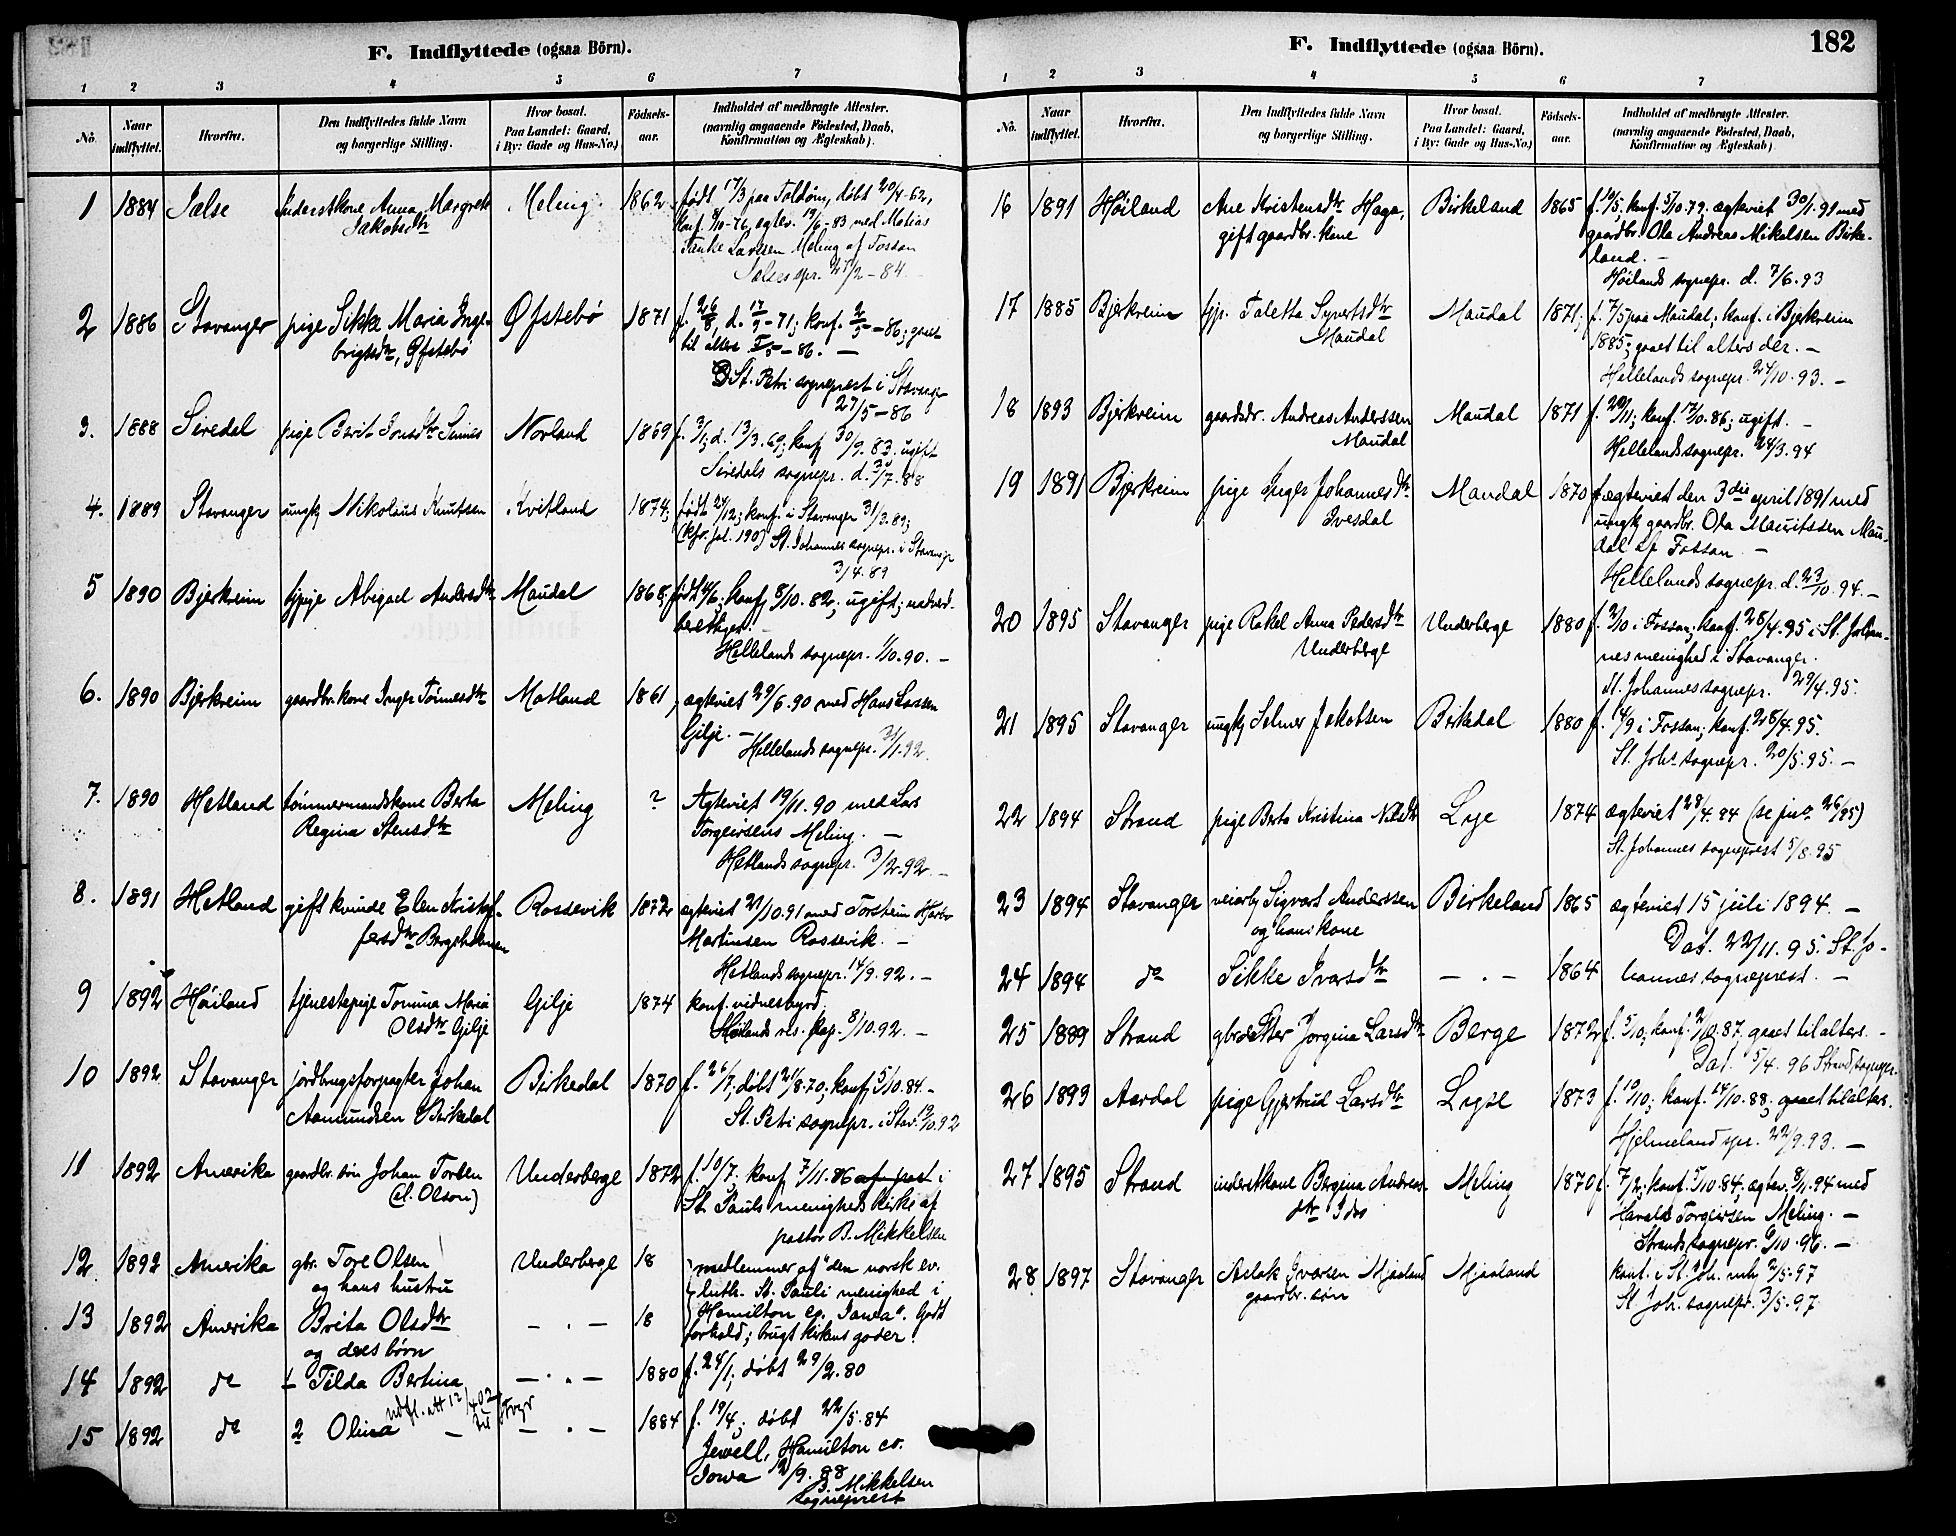 F. Indflyttede (ogsaa Börn).
1 2 3 4 5 6 7
No.
Naar indflyttet.
Hvorfra.
Den Indflyttedes fulde Navn og borgerlige Stilling.
Hvor bosat. Paa Landet: Gaard, i By: Gade og Hus-No.)
Fødsels-aar.
Indholdet af medbragte Attester. (navnlig angaaende Fødested, Daab, Konfirmation og Ægteskab).
1 1884 Jælse Inderstkone Anna Margrete Meling. 1862 født 17/3 paa Foldøen, døbt 20/4-62,
Jakobsdtr konf. /10-76, egtev. 19/6-83 med Matias
Tanke Larssen Meling af Fossan
Jælse spr. 27/2-84
2 1886 Stavanger pige Sikke Maria Inge- Øfstebø 1871 f. 26/8, d. 17/9-71; konf. 2/5-86; gaaet
brigtsdtr, Øfstebø til alters /5-86. —
St. Petri sogneprest i Stavanger
27/5-86
3. 1888 Siredal pige Berit Jonsdtr Norland 1869 f. 3/1; d. 13/3.69; konf. 30/9.83. ugift
Siredals sognepr. d. 30/7.88
4. 1889 Stavanger ungk Nikolaus Knutsen Kvitland 1874; født 24/12; konf. i Stavanger 31/3.89;
(kfr. fol. 190) St. Johannes sognepr. i Stavanger
3/4.89
5 1890 Bjerkreim tj.pige Abigael Andersdtr Maudal 1868; født 4/6; konf. 8/10.82; ugift; nadverd-
berettiget. —
Hellelands sognepr. 1/10.90. —
6. 1890 Bjerkreim gaardbr. kone Inger Tønnesdtr Matland 1861, ægteviet 29/6.90 med Hans Larssen
Gilje. —
Hellelands sognepr. 31/1.92.
7. 1890 Hetland tømmermandskone Berta Meling ? Ægteviet 19/11.90 med Lars
Regina Stensdtr Torgeirsens Meling. —
Hetlands sognepr. 3/2.92. —
8. 1891 Hetland gift kvinde Elen Kristof- Rossevik 1872 egteviet 21/10.91 med Torstein
fersdtr Martinsen Rossevik. —
Hetlands sognepr. 14/9.92. —
9 1892 Høiland tjenestepige Tomina Maria Gilje 1874 konf. vidnesbyrd.
Olsdtr Gilje Høilands res. kap. 8/10.92. —
10 1892 Stavanger jordbrugsforpagter Johan Birkedal 1870 f. 26/7; døbt 21/8.70; konf. 5/10.84. —
Aamundsen Birkedal St. Petri sognepr. i Stav. 19/10.92
11 1892 Amerika gaardbr. søn Johan Toresen Underberge 1872 f. 10/7; konf. 7/11.86 af past i
(el. Olson) St. Pauls menigheds kirke af
pastor B. Mikkelsen
12 1892 Amerika gbr. Tore Olsen Underberge 18 medlemmer af "den norsk ev.
og hans hustru luth. St. Pauli menighed i
13 1892 Amerika Brita Olsdtr — . — 18 Hamilton co. Iowa". Godt
og deres børn forhold; brugt kirkens goder.
14 1892 do 1 Tilda Bertina — . — 1880 f. 24/1; døbt 29/2.80
udfl. att 12/4 02 til Stvgr
15 1892 do 2 Olina — — . — 1884 f. 19/4; døbt 22/5.84
Jewell, Hamilton co.
Iowa 12/9.88
B. Mikkelsen
sogneprest
F. Indflyttede (ogsaa Börn).
182
1 2 3 4 5 6 7
No.
Naar indflyttet.
Hvorfra.
Den Indflyttedes fulde Navn og borgerlige Stilling.
Hvor bosat. Paa Landet: Gaard, i By: Gade og Hus-No.)
Fødsels-aar.
Indholdet af medbragte Attester. (navnlig angaaende Fødested, Daab, Konfirmation og Ægteskab).
16 1891 Høiland Ane Kristensdtr Haga, Birkeland 1865 f. 19/5; konf. 5/10.79; ægteviet 30/1.91 med
gift gaardbr. kone gaardbr. Ola Andreas Mikalsen Birke-
land. —
Høilands sognepr. d. 7/6.93
17 1885 Bjerkreim tjp. Taletta Syvertsdtr Maudal 1871; f. 7/5 paa Maudal; konf. i Bjerkreim
Maudal 1885; gaaet til alters der. —
Hellelands sognepr. 24/10.93. —
18 1893 Bjerkreim gaardsdr. Andreas Anderssen Maudal 1871 f. 20/11; konf. 17/10.86; ugift. —
Maudal Hellelands sognepr. 24/3.94
19 1891 Bjerkreim pige Inger Johannesdtr Maudal 1870 ægteviet den 3die april 1891 med
Ivesdal ungk gaardbr. Ola Mauritssen Mau-
dal af Fossan —
Hellelands sognepr. d. 23/10.94. —
20 1895 Stavanger pige Rakel Anna Pedersdtr Underberge 1880 f. 2/10 i Fossan; konf. 28/4.95 i St. Johan-
Underberge nes menighed i Stavanger.
St. Johannes sognepr. 29/4.95.
21 1895 Stavanger ungk Selmer Jakobsen Birkedal 1880 f. 14/9 i Fossan; konf. 28/4.95.
St. Johs sognepr. 20/5.95. —
22 1894 Strand pige Berta Kristina Nilsdtr Lyse 1874 ægteviet 28/4.94 (se jno 26/95)
St. Johannes sogneprest 5/8.95
23 1894 Stavanger veiarb. Sigvart Anderssen Birkeland 1865 ægteviet 15 juli 1894. —
og hans kone Dat. 22/11.95. St. Jo-
24 1894 do Sikke Ivarsdtr — . — 1864 hannes sogneprest. —
25 1889 Strand gbr.datter Jorgina Larsdtr Berge 1872 f. 5/10; konf. 2/10.87, gaaet til alters. —
Dat. 5/4.96 Strand sognepr.
26 1893 Aardal pige Gjertrud Larsdtr Lyse 1873 f. 19/10; konf. 14/10.88; gaaet til alters.
Hjelmeland spr. 22/9.93. —
27 1895 Strand inderstkone Bergina Andreas- Meling 1870 f. 7/2; konf. 5/10.84; ægtev. 8/11.94 med
dtr Idso Harald Torgeirsen Meling. —
Strands sognepr. 9/10.96. —
28 1897 Stavanger Aslak Ivarsen Mjaaland Mjaaland konf. i St. Joh. mh 2/5-97
gaardbr. søn St. Joh. sognepr. 3/5-97